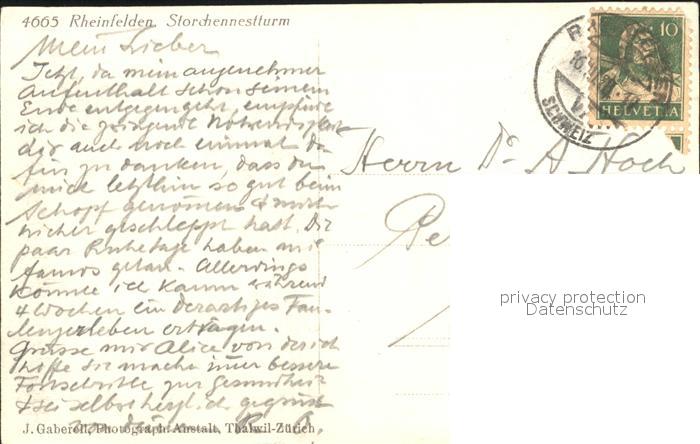 4665 Rheinfelden. Storchennestturm
Mein Lieber
Jetzt, da mein angenehmer
Aufenthalt schon seinem
Ende entgegengeht, empfinde
ich die dringende Notwendigkeit
dir auch noch einmal da-
für zu danken, dass du
mich letzthin so gut beim
Schopf genommen & mich
hieher geschleppt hast. Die
paar Ruhetage haben mir
famos getan. Allerdings
könnte ich kaum während
4 Wochen ein derartiges Fau-
lenzerleben ertragen.
Grüsse mir Alice von der ich
hoffe sie mache immer bessere
Fortschritte zur Gesundheit
& sei selbst herzlich gegrüsst
J. Gaberell, Photograph. Anstalt, Thalwil-Zürich
10
HELVETIA
SCHWEIZ
Herrn Dr. A. Hoch
privacy protection
Datenschutz